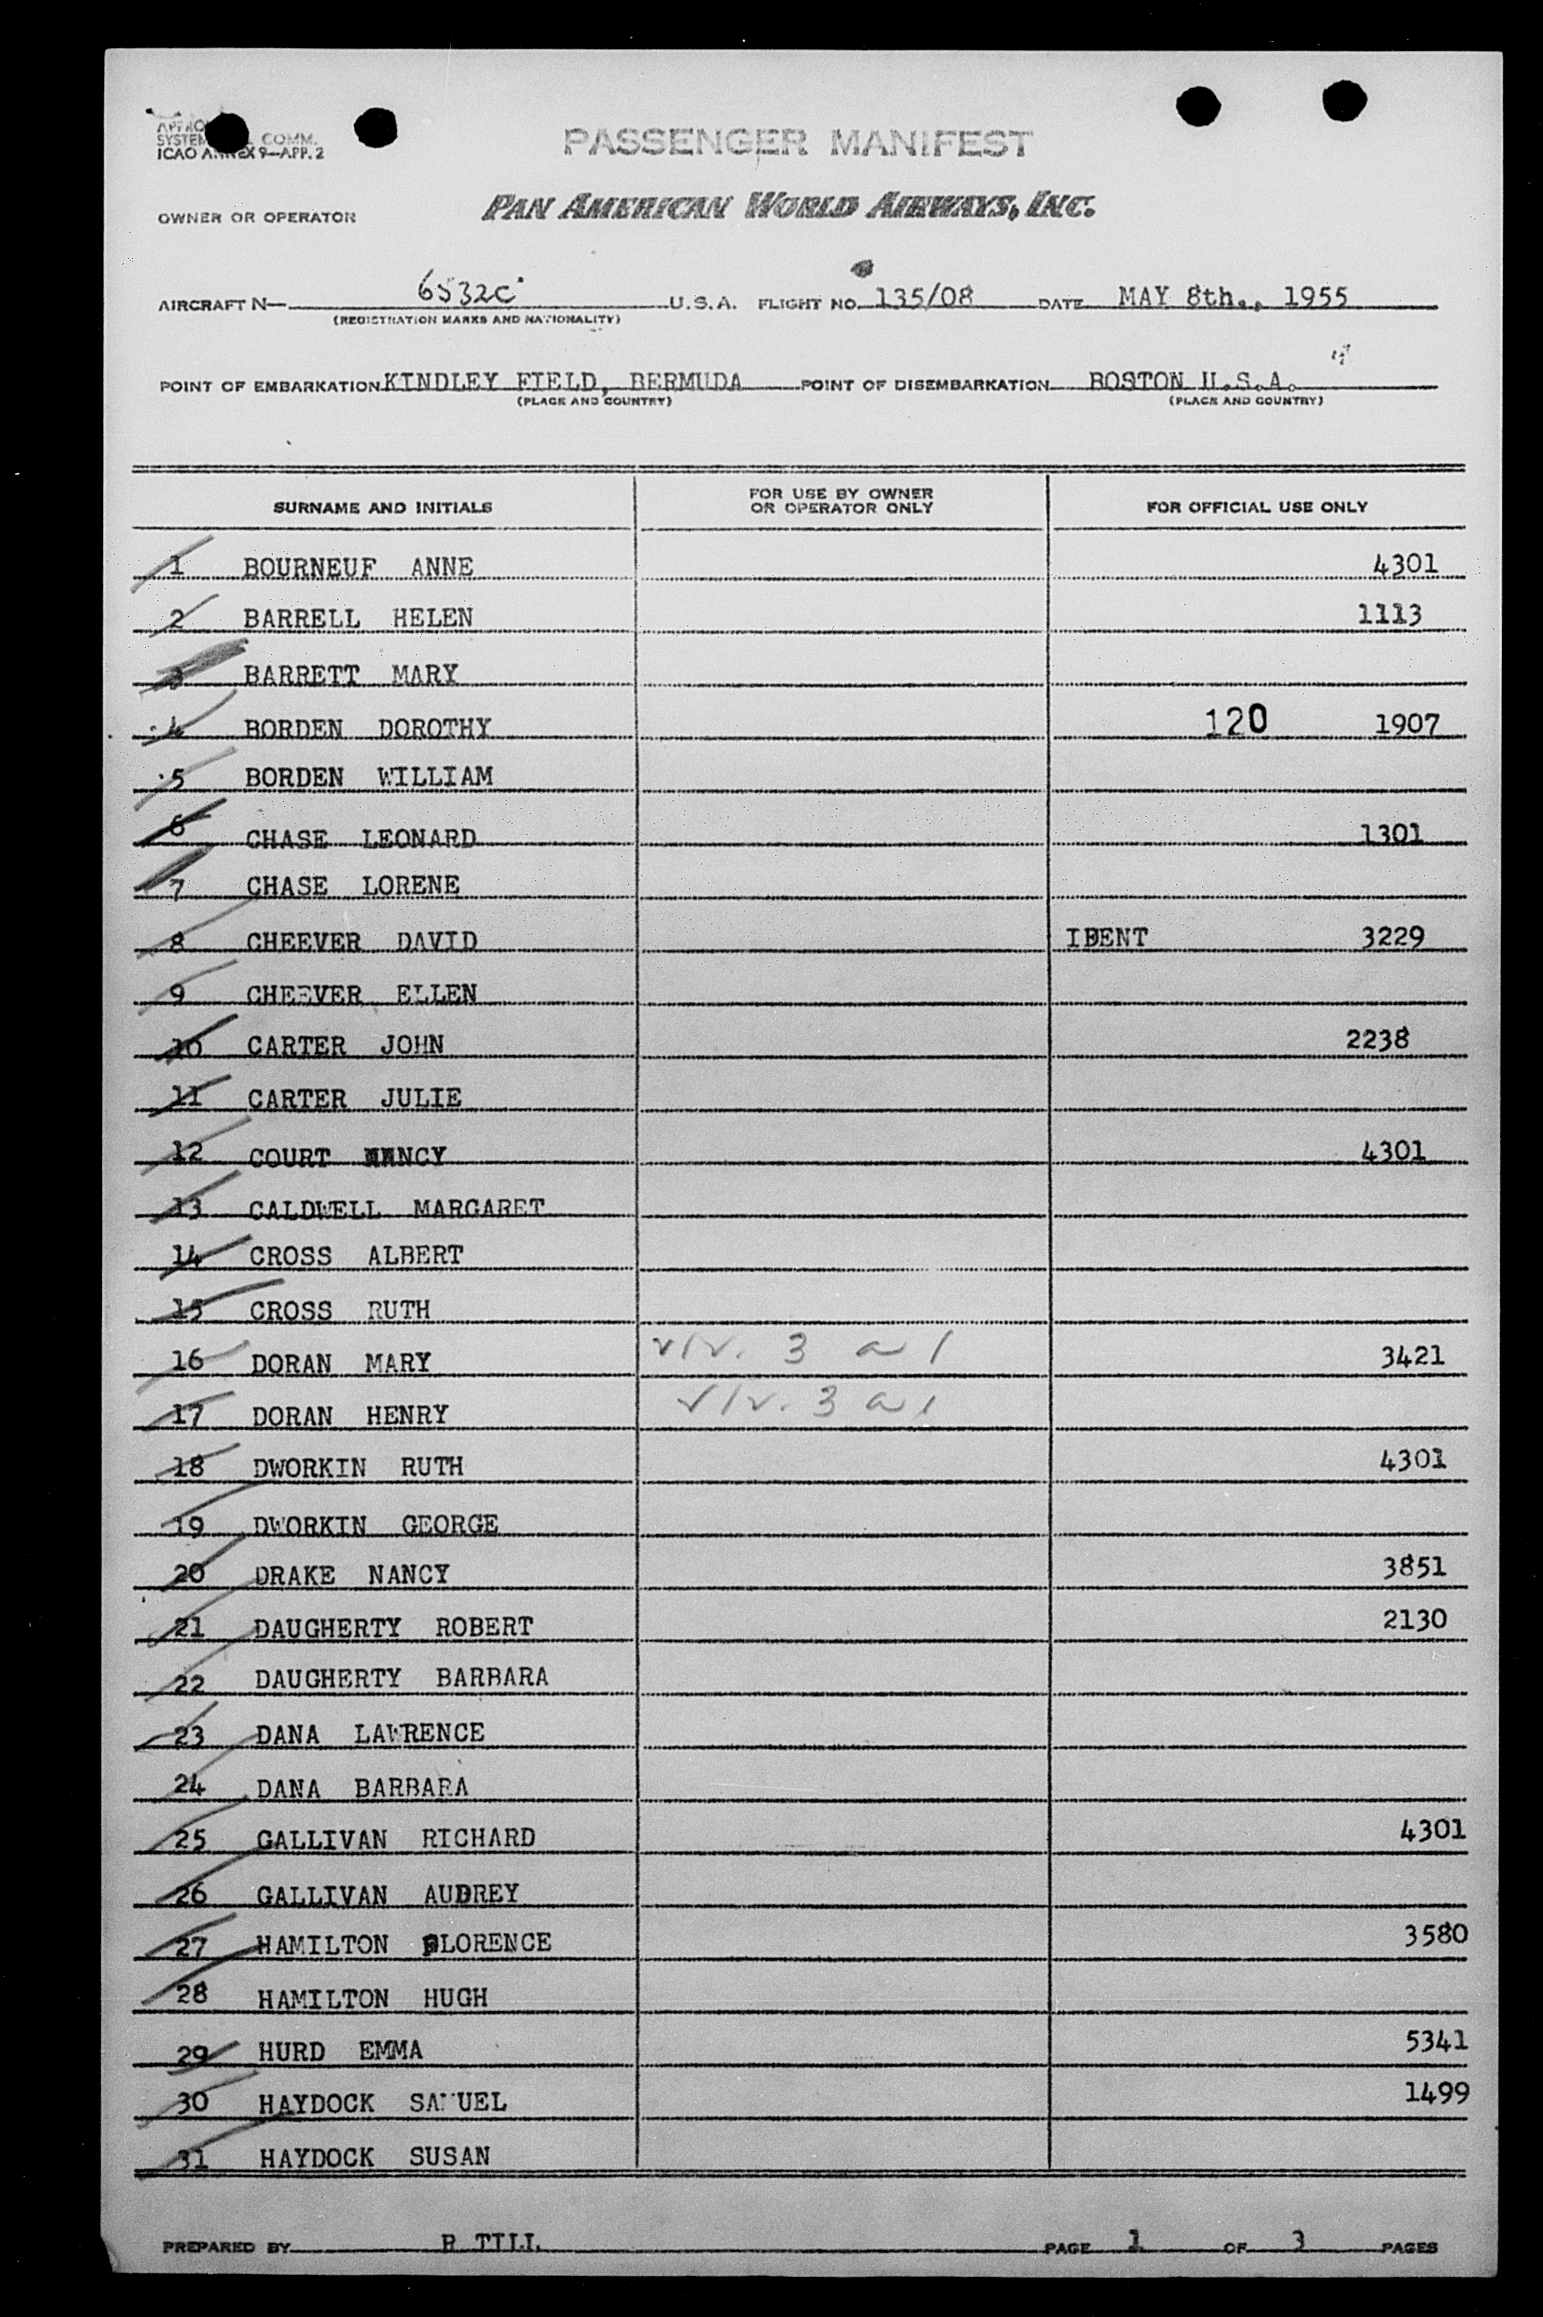 SYSTEM COMM.
ICAO ANNEX 9—APP. 2
PASSENGER MANIFEST
OWNER OR OPERATOR PAN AMERICAN WORLD AIRWAYS, INC.
AIRCRAFT N— 6532C U.S.A. FLIGHT NO. 135/08 DATE MAY 8th., 1955
(REGISTRATION MARKS AND NATIONALITY)
POINT OF EMBARKATION KINDLEY FIELD, BERMUDA POINT OF DISEMBARKATION BOSTON U.S.A.
(PLACE AND COUNTRY) (PLACE AND COUNTRY)
SURNAME AND INITIALS FOR USE BY OWNER OR OPERATOR ONLY FOR OFFICIAL USE ONLY
1 BOURNEUF ANNE 4301
2 BARRELL HELEN 1113
3 BARRETT MARY
4 BORDEN DOROTHY 120 1907
5 BORDEN WILLIAM
6 CHASE LEONARD 1301
7 CHASE LORENE
8 CHEEVER DAVID IDENT 3229
9 CHEEVER ELLEN
10 CARTER JOHN 2238
11 CARTER JULIE
12 COURT NANCY 4301
13 CALDWELL MARGARET
14 CROSS ALBERT
15 CROSS RUTH
16 DORAN MARY 3421
17 DORAN HENRY
18 DWORKIN RUTH 4301
19 DWORKIN GEORGE
20 DRAKE NANCY 3851
21 DAUGHERTY ROBERT 2130
22 DAUGHERTY BARBARA
23 DANA LAWRENCE
24 DANA BARBARA
25 GALLIVAN RICHARD 4301
26 GALLIVAN AUDREY
27 HAMILTON FLORENCE 3580
28 HAMILTON HUGH
29 HURD EMMA 5341
30 HAYDOCK SAMUEL 1499
31 HAYDOCK SUSAN
PREPARED BY R TILL PAGE 1 OF 3 PAGES